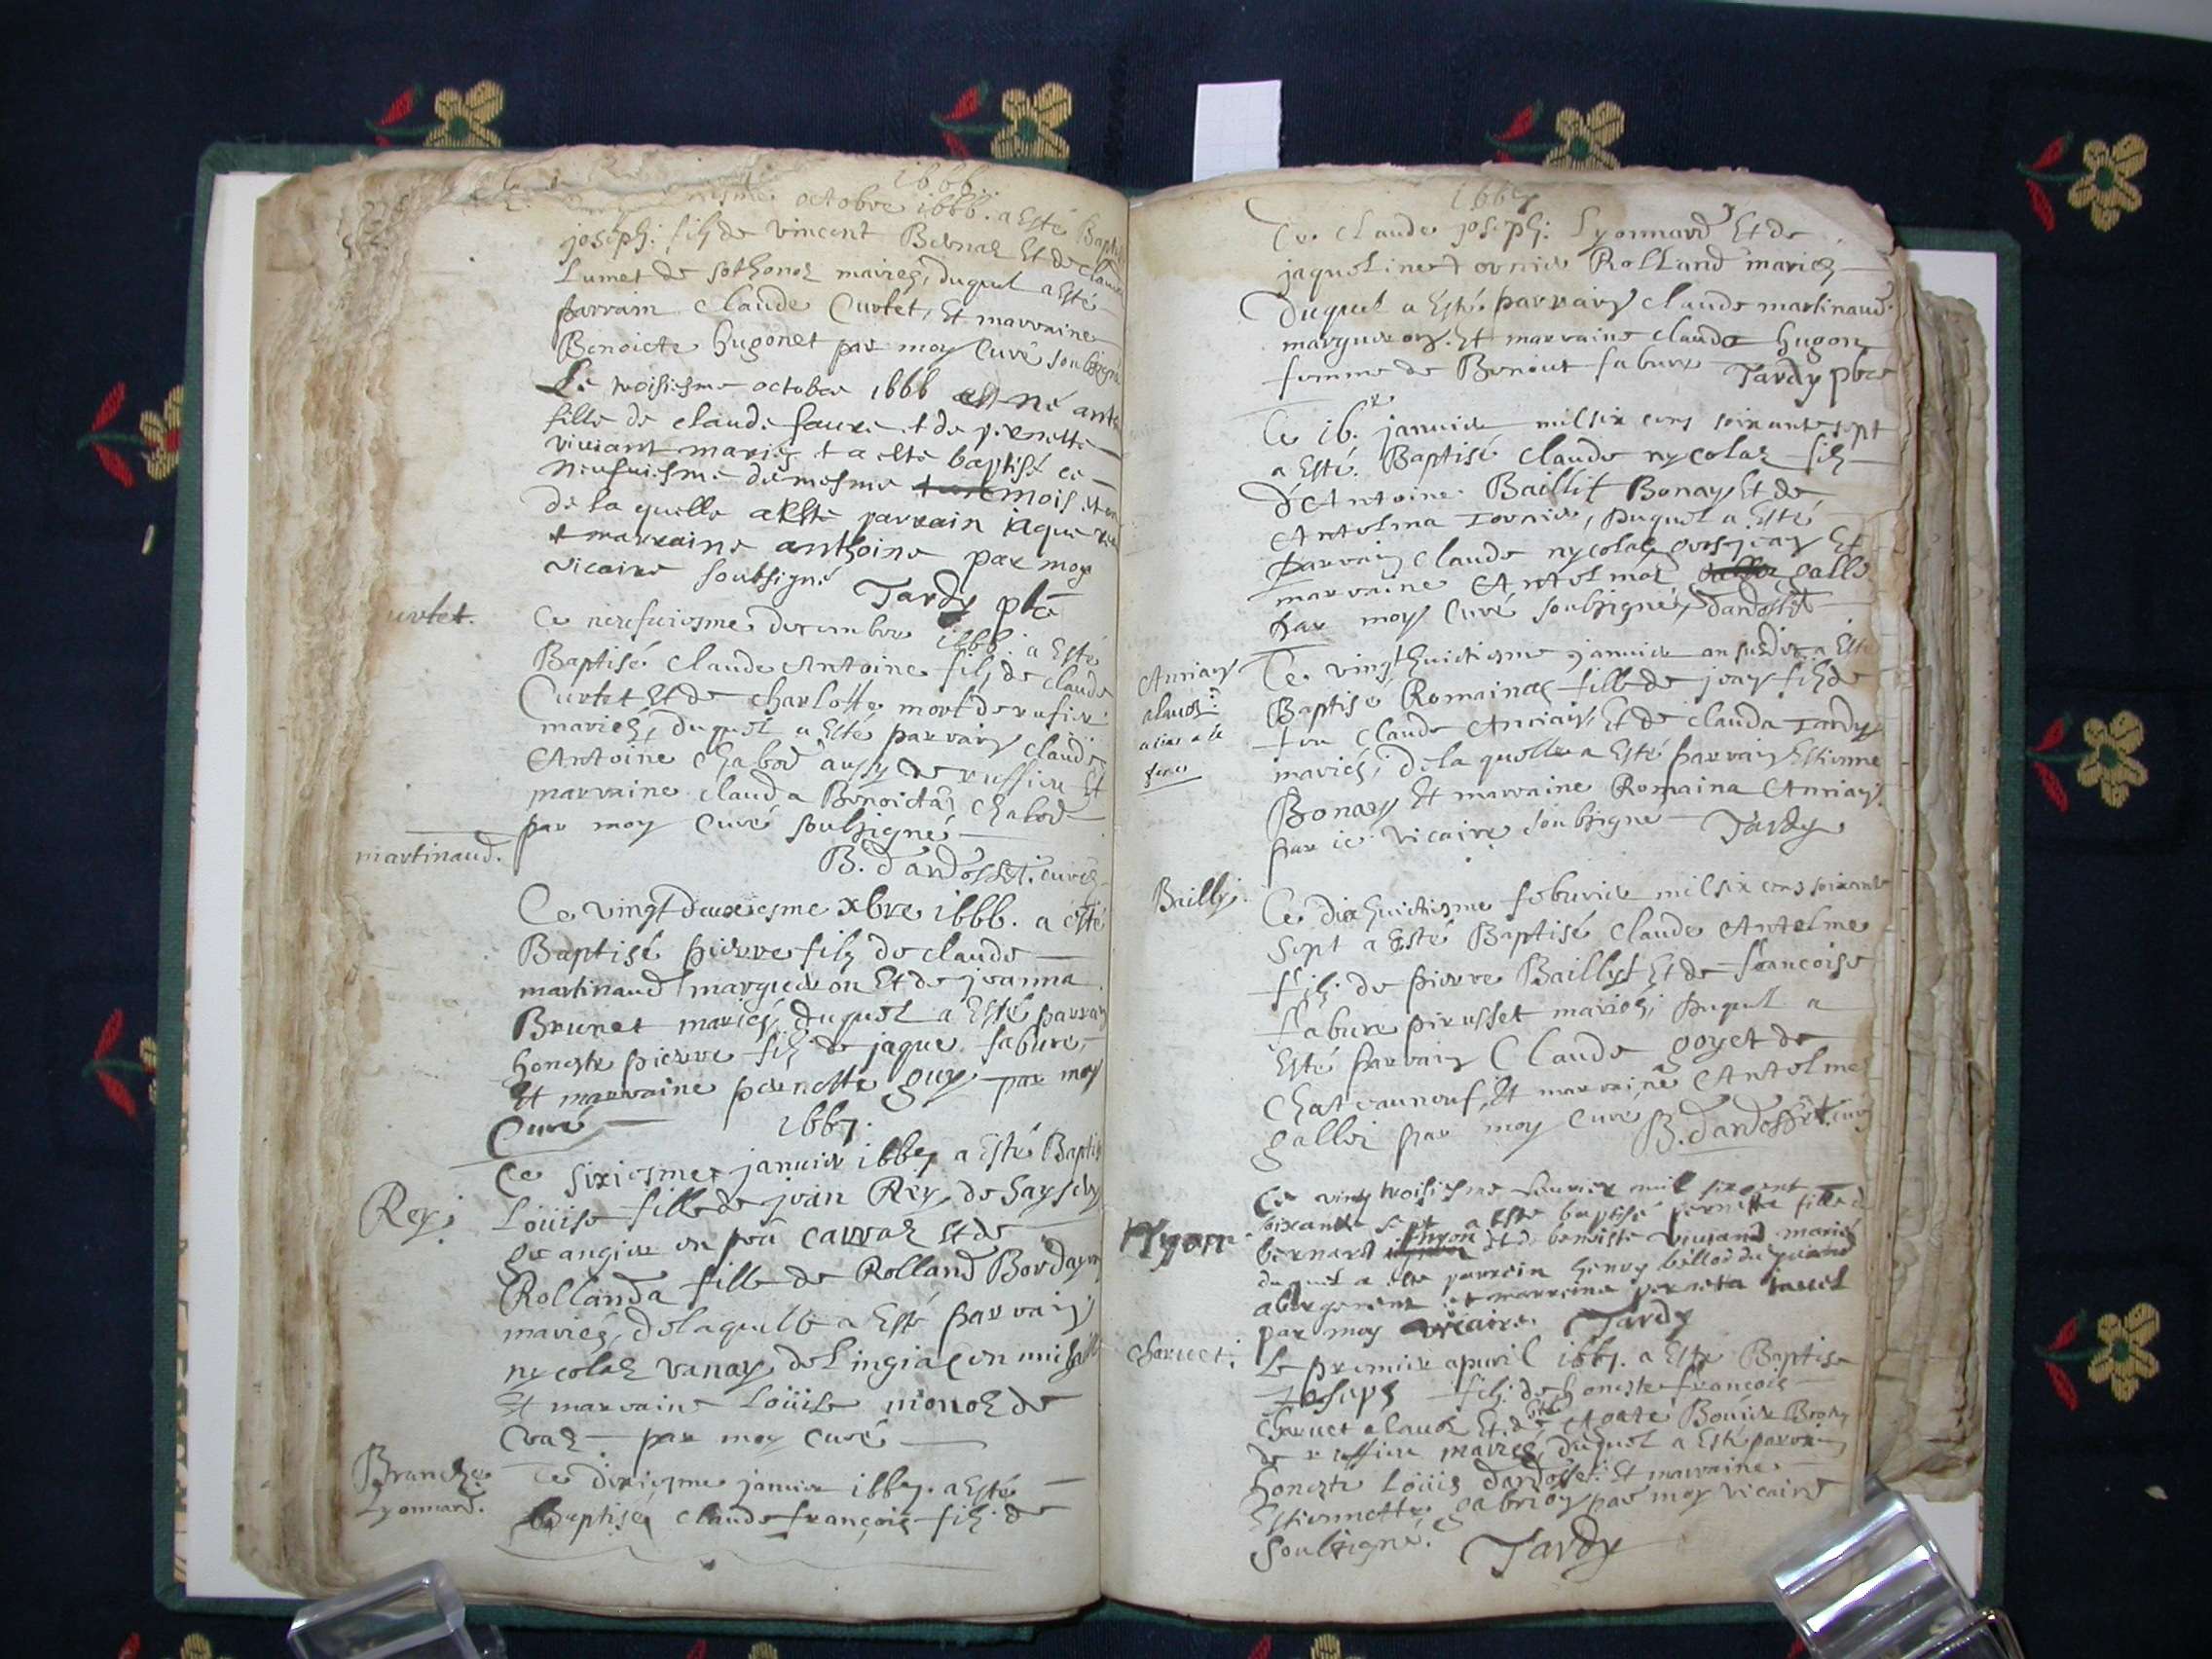 1666.
octobre 1666. a esté Bapti
joseph: filz de vincent Bernaz Et de claud
Lumet de sothonoz mariez, duquel a esté
parrain Claude Curtet, Et marraine
Benoicte hugonet par moy Curé soubsigné
Le troisiesme octobre 1666 est né
fille de claude faure et de pernette
viuiant mariés + a esté baptisé ce
neufuiesme de mesme mois
de la quelle a esté parrain iaque
+ marraine anthoine par moy
vicaire soubsigné Tardy pbre
urtet.
Ce neufuiesme decembre 1666. a esté
Baptisé Claude Antoine filz de claude
Curtet Et de Charlotte mort de rufieu
mariez, duquel a esté parrain claude
Antoine Chabod aussy de ruffieu Et
marraine clauda Benoicta Chabod
par moy Curé soubsigné
B. Dardosset. curez
martinaud.
Ce vingtdeuxiesme xbre 1666. a esté
Baptisé pierre filz de claude
martinaud margueron Et de jeanna
Brunet mariez, duquel a esté parrain
honeste pierre filz de jaque fabure,
Et marraine pernette guy par moy
Curé
1667.
Rey.
Ce sixiesme janvier 1667 a esté Baptis
Loüise fille de jean Rey de
en Et de
Rollanda fille de Rolland
mariez, de laquelle a esté parrain
nycolaz vanay de Lingiaz en
Et marraine Loüise monoz de
Craz par moy Curé
Branche
Lyonnard.
Ce dixiesme janvier 1667. a esté
Baptisé claude françois filz de
1667
feu Claude joseph: Lyonnard Et de
jaqueline Rolland mariez
Duquel a esté parrain claude martinaud
margueron. Et marraine clauda hugon
femme de Benoict fabure Tardy pbre
Ce 16.e janvier mil six cens soixante sept
a esté Baptisé Claude nycolaz filz
d'Antoine Baillif Bonay Et de
Antelma Tornier, Duquel a esté
parrain claude nycolaz grosjean Et
marraine Antelmaz galle
par moy Curé soubsigné, Dardosset
Anciay
alauoz
alias a la
Ce vingthuictiesme janvier an susdit a esté
Baptisé Romainaz fille de jean filz de
feu Claude Anciay, Et de clauda Tardy
mariés, de la quelle a esté parrain Estienne
Bonay Et marraine Romaina Anciay
par ie vicaire soubsigné Tardy
Bailly.
Ce dixhuictiesme feburier mil six cens soixante
sept a esté Baptisé Claude Antelme
filz de pierre Baillyf Et de francoise
fabure pirusset mariez, Duquel a
esté parrain Claude goyet de
Chateauneuf, Et marraine Antelme
gallei par moy Curé B. Dardosset. curé
Hyon
Ce vingt troisiesme feurier mil six cent
soixante sept a esté baptisé pernette fille d
bernard hyon et de benoiste viuiand mariés
duquel a esté parrein henry bellod du grand
abergement et marreine perneta
par moy vicaire. Tardy
Charuet.
Le premier apuril 1667. a esté Baptise
Joseph filz de honeste francois
Charuet alauoz Et de Agate
de ruffieu mariez, duquel a esté parrain
honeste Loüis Dardosset. Et marraine
Estiennette gabrion par moy vicaire
soubsigné. Tardy